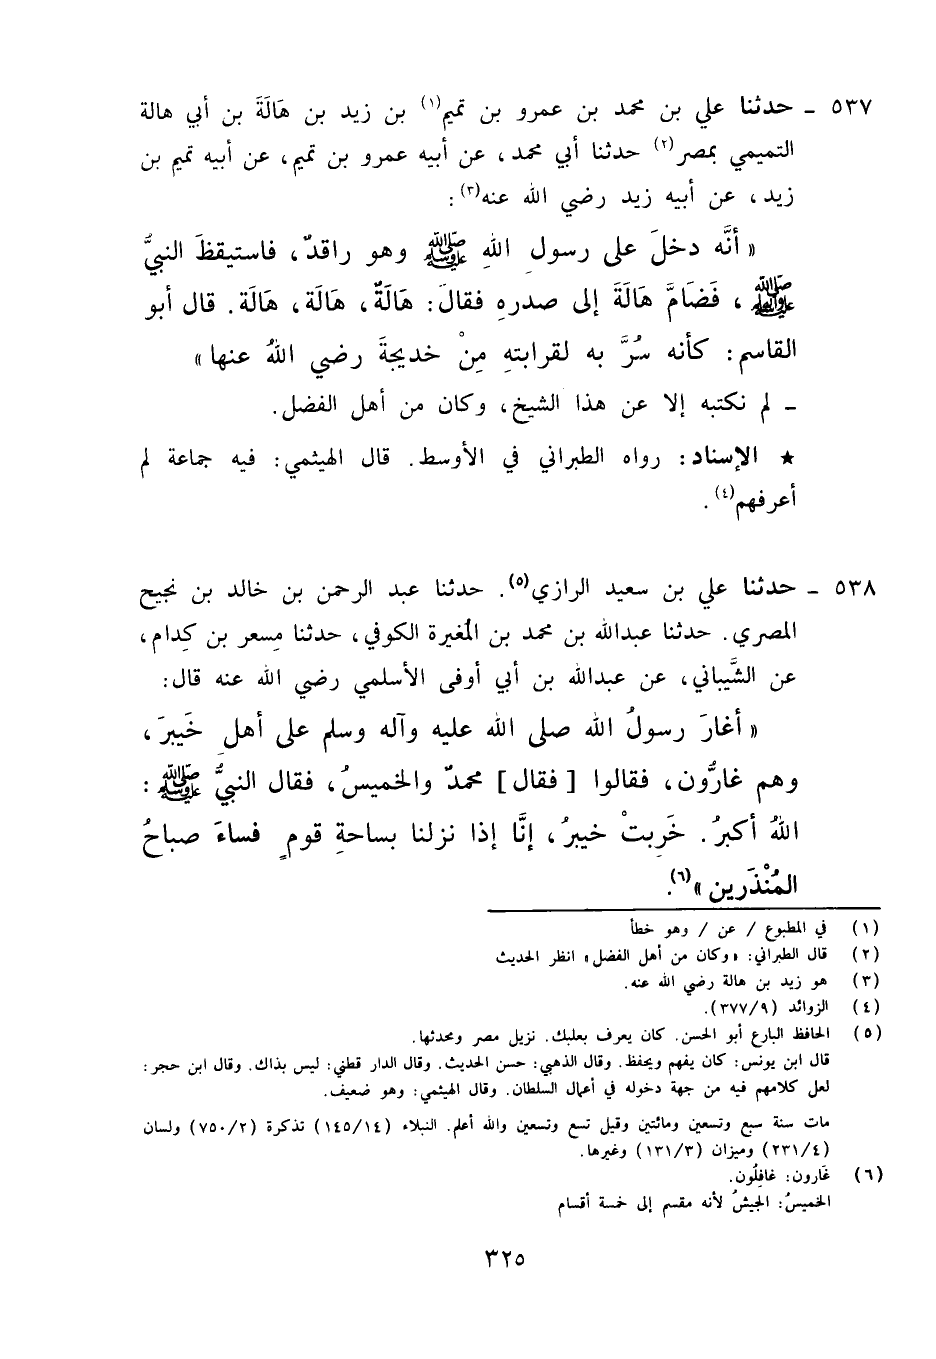 ٥٣٧ ـ حدثنا علي بن محمد بن عمرو بن تميم(١) بن زيد بن هَالَةَ بن أبي هالة
التميمي بمصر(٢) حدثنا أبي محمد، عن أبيه عمرو بن تميم، عن أبيه تميم بن
زيد، عن أبيه زيد رضي الله عنه(٣):
« أنَّه دخلَ على رسولِ اللهِ ﷺ وهو راقدٌ، فاستيقظَ النبيُّ
ﷺ، فَضَامَّ هَالَةَ إلى صدرهِ فقالَ: هَالَةٌ، هَالَة، هَالَة. قال أبو
القاسم: كأنه سُرَّ به لقرابتهِ مِنْ خديجةَ رضي اللهُ عنها»
ـ لم نكتبه إلا عن هذا الشيخ، وكان من أهل الفضل.
★ الإسناد: رواه الطبراني في الأوسط. قال الهيثمي: فيه جماعة لم
أعرفهم(٤).
٥٣٨ ـ حدثنا علي بن سعيد الرازي(٥). حدثنا عبد الرحمن بن خالد بن نجيح
المصري. حدثنا عبدالله بن محمد بن المُغيرة الكوفي، حدثنا مِسعر بن كِدام،
عن الشَّيباني، عن عبدالله بن أبي أوفى الأسلمي رضي الله عنه قال:
« أغارَ رسولُ الله صلى الله عليه وآله وسلم على أهلِ خَيبرَ،
وهم غارُّون، فقالوا [فقال] محمدٌ والخميسُ، فقال النبيُّ ﷺ:
اللهُ أكبرُ. خَرِبتْ خيبرُ، إنَّا إذا نزلنا بساحةِ قومٍ فساءَ صباحُ
المُنْذَرين»(٦).
(١) في المطبوع / عن / وهو خطأ
(٢) قال الطبراني: «وكان من أهل الفضل» انظر الحديث
(٣) هو زيد بن هالة رضي الله عنه.
(٤) الزوائد (٣٧٧/٩).
(٥) الحافظ البارع أبو الحسن. كان يعرف بعلبك. نزيل مصر ومحدثها.
قال ابن يونس: كان يفهم ويحفظ. وقال الذهبي: حسن الحديث. وقال الدار قطني: ليس بذاك. وقال ابن حجر:
لعل كلامهم فيه من جهة دخوله في أعمال السلطان. وقال الهيثمي: وهو ضعيف.
مات سنة سبع وتسعين ومائتين وقيل تسع وتسعين والله أعلم. النبلاء (١٤٥/١٤) تذكرة (٧٥٠/٢) ولسان
(٢٣١/٤) وميزان (١٣١/٣) وغيرها.
(٦) غَارون: غافِلُون.
الخميسُ: الجيشُ لأنه مقسم إلى خمسة أقسام
٣٢٥